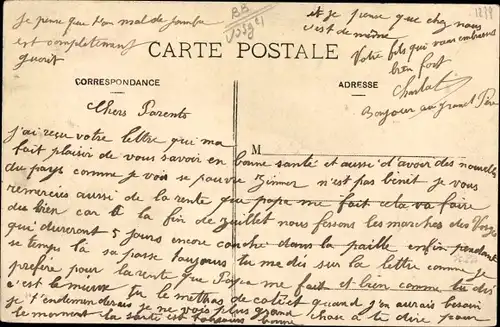 je pense que ton mal de jambe
est completement
guerit
BB
Vosges
et je pense que chez nous
c'est de même
Votre fils qui vous embrasse
bien fort
Bonjour au grand Père
CARTE POSTALE
CORRESPONDANCE
ADRESSE
M
Chers Parents
J'ai reçu votre lettre qui ma
fait plaisir de vous savoir en bonne santé et aussi d'avoir des nouvelles
du pays comme je vois se pauvre Zinner n'est pas bénit je vous
remercies aussi de la rente que papa me fait cela va faire
du bien car à la fin de Juillet nous fesons les marches des Vosges
qui dureront 5 jours encore couché dans la paille enfin pendant
se temps là sa passe toujours tu me dis sur la lettre comme je
préfère pour la rente que Papa me fait et bien comme tu dis
c'est le mieux tu le mettras de coté et quand j'en aurais besoin
je t'endemanderais je ne vois plus grand chose a te dire pour
le moment la santé est toujours bonne